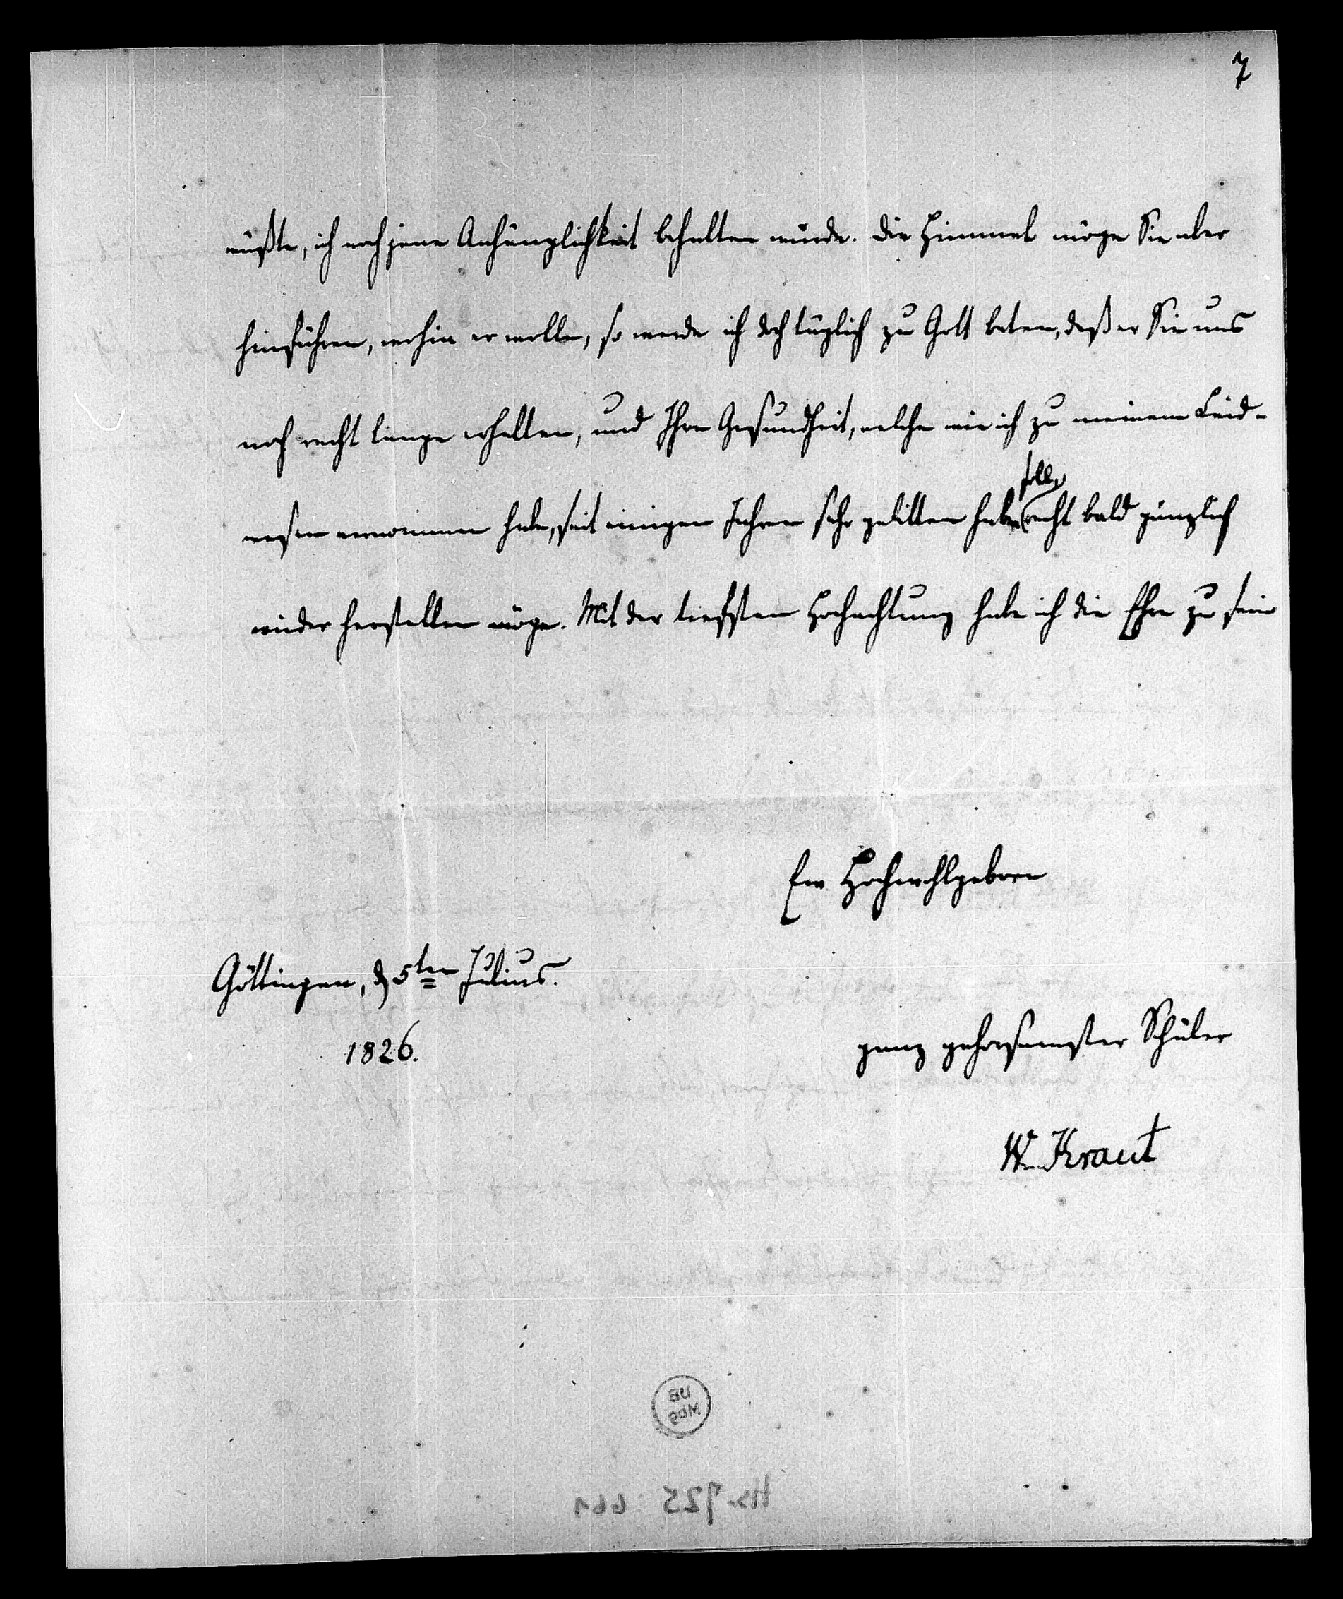 7
müßte, ich noch jene Anhänglichkeit behalten würde. Der Himmel möge Sie aber
hinführen, wohin er wolle, so werde ich doch täglich zu Gott beten, daß er Sie uns
noch recht lange erhalten, und Ihre Gesundheit, welche wie ich zu meinem Leid-
wesen vernommen habe, seit einigen Jahren sehr gelitten haben soll, recht bald gänzlich
wieder herstellen möge. Mit der tiefsten Hochachtung habe ich die Ehre zu sein
Ew. Hochwohlgeboren
Göttingen, d. 5ten Julius.
1826.
ganz gehorsamster Schüler
W. Kraut
UB
MBG
Hs. 725 : 661